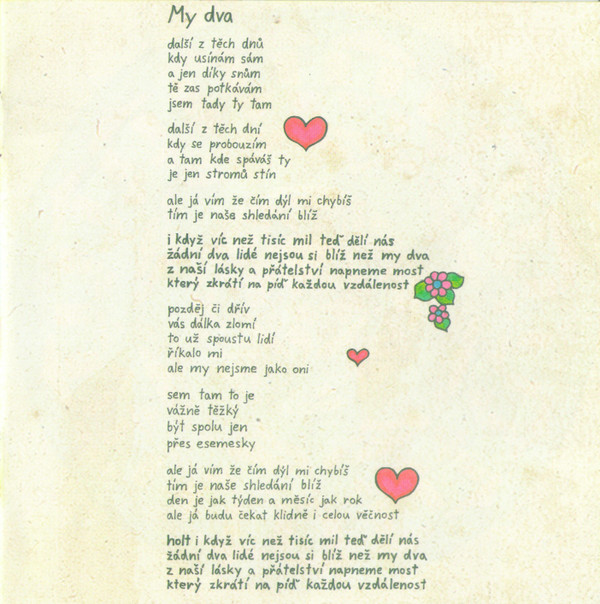 My dva
další z těch dnů
kdy usínám sám
a jen díky snům
tě zas potkávám
jsem tady ty tam
další z těch dní
kdy se probouzím
a tam kde spáváš ty
je jen stromů stín
ale já vím že čím dýl mi chybíš
tím je naše shledání blíž
i když víc než tisíc mil teď dělí nás
žádní dva lidé nejsou si blíž než my dva
z naší lásky a přátelství napneme most
který zkrátí na píď každou vzdálenost
pozděj či dřív
vás dálka zlomí
to už spoustu lidí
říkalo mi
ale my nejsme jako oni
sem tam to je
vážně těžký
být spolu jen
přes esemesky
ale já vím že čím dýl mi chybíš
tím je naše shledání blíž
den je jak týden a měsíc jak rok
ale já budu čekat klidně i celou věčnost
holt i když víc než tisíc mil teď dělí nás
žádní dva lidé nejsou si blíž než my dva
z naší lásky a přátelství napneme most
který zkrátí na píď každou vzdálenost